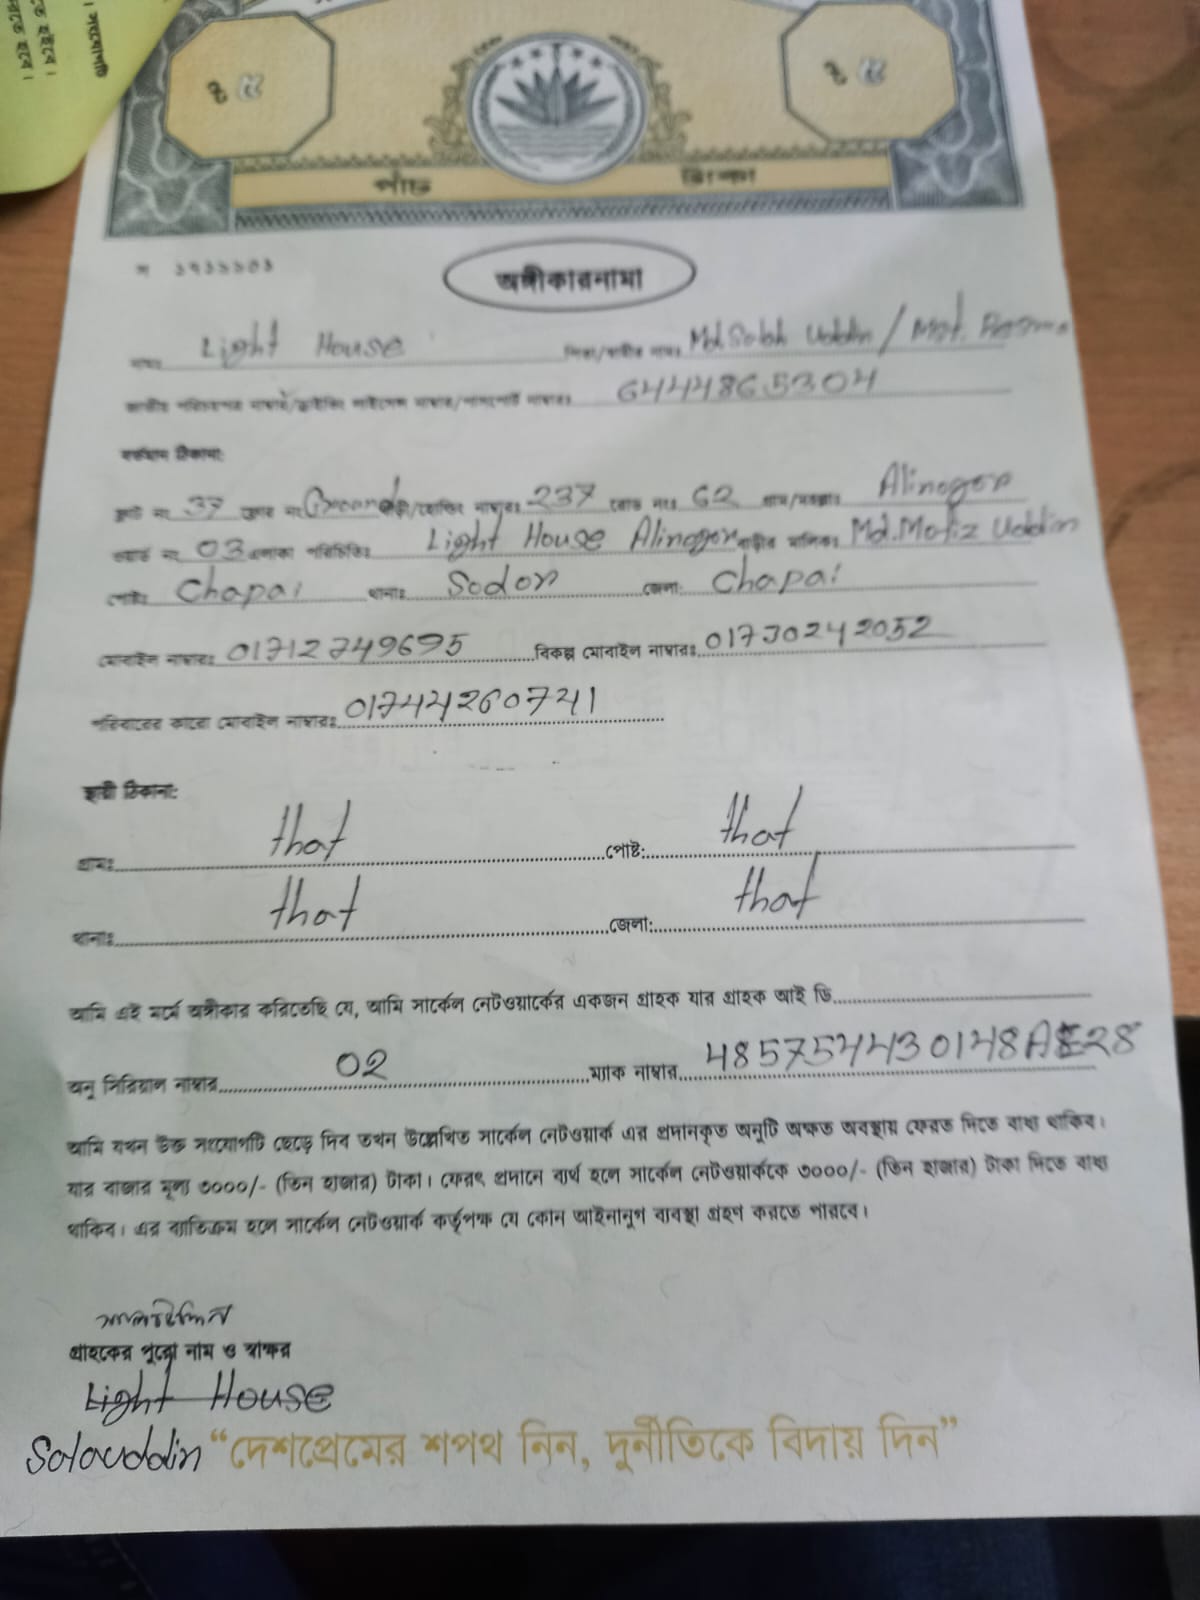 ৳ ৫
৳ ৫
পাঁচ টাকা
অঙ্গীকারনামা
নামঃ Light House পিতা/স্বামীর নামঃ Md. Salah Uddin / Mst.
জাতীয় পরিচয়পত্র নাম্বার/ড্রাইভিং লাইসেন্স নাম্বার/পাসপোর্ট নাম্বারঃ 6444865304
বর্তমান ঠিকানা:
ফ্লাট নং 37 ফ্লোর নং Ground বাড়ী/হোল্ডিং নাম্বারঃ 237 রোড নংঃ 62 গ্রাম/মহল্লাঃ Alinogor
ওয়ার্ড নং 03 এলাকা পরিচিতিঃ Light House Alinogor বাড়ীর মালিকঃ Md. Mofiz Uddin
পোষ্টঃ Chapai থানাঃ Sodor জেলা: Chapai
মোবাইল নাম্বারঃ 01712749695 বিকল্প মোবাইল নাম্বারঃ 01730242052
পরিবারের কারো মোবাইল নাম্বারঃ 01744260741
স্থায়ী ঠিকানা:
গ্রামঃ that পোষ্ট: that
থানাঃ that জেলা: that
আমি এই মর্মে অঙ্গীকার করিতেছি যে, আমি সার্কেল নেটওয়ার্কের একজন গ্রাহক যার গ্রাহক আই ডি
অনু সিরিয়াল নাম্বার 02 ম্যাক নাম্বার
আমি যখন উক্ত সংযোগটি ছেড়ে দিব তখন উল্লেখিত সার্কেল নেটওয়ার্ক এর প্রদানকৃত অনুটি অক্ষত অবস্থায় ফেরত দিতে বাধ্য থাকিব।
যার বাজার মূল্য ৩০০০/- (তিন হাজার) টাকা। ফেরৎ প্রদানে ব্যর্থ হলে সার্কেল নেটওয়ার্ককে ৩০০০/- (তিন হাজার) টাকা দিতে বাধ্য
থাকিব। এর ব্যাতিক্রম হলে সার্কেল নেটওয়ার্ক কর্তৃপক্ষ যে কোন আইনানুগ ব্যবস্থা গ্রহণ করতে পারবে।
সালাউদ্দিন
গ্রাহকের পুরো নাম ও স্বাক্ষর
Light House
Salauddin “দেশপ্রেমের শপথ নিন, দুর্নীতিকে বিদায় দিন”